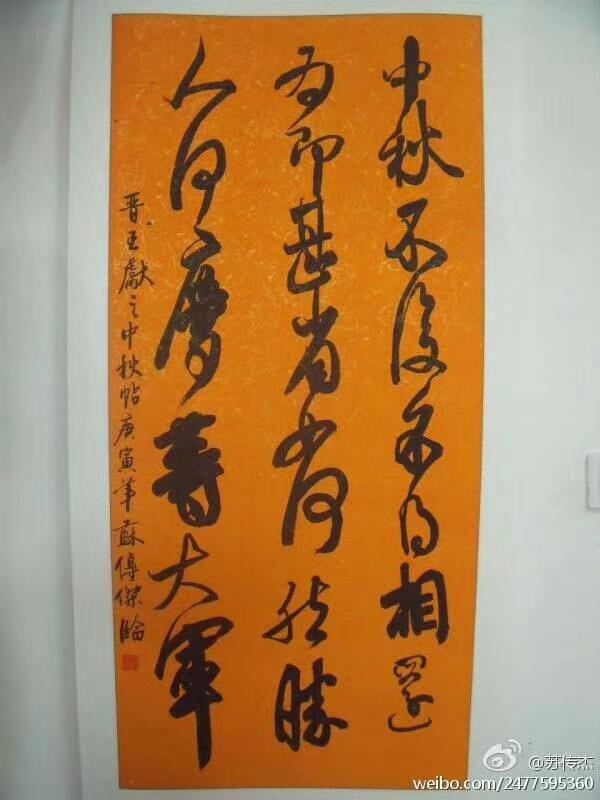 中秋不復不得相還
為即甚省如何然勝
人何慶等大軍
晋王獻之中秋帖庚寅年蘇傳傑臨
@苏传杰
weibo.com/2477595360